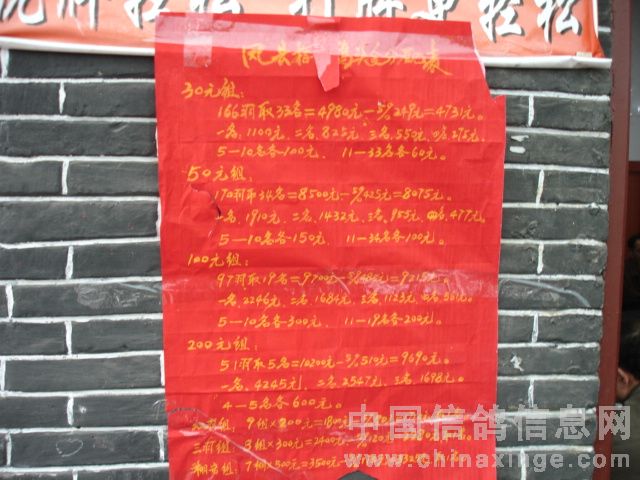 打牌更轻松
30元组:
166羽取33名=4980元-5%249元=4731元。
一名,1100元、二名,825元、三名,550元、四名275元、
5-10名各100元、 11-33名各60元。
50元组:
170羽取34名=8500元-5%425元=8075元。
一名,1910元、二名,1432元、三名,955元、四名,477元、
5-10名各150元、 11-34名各100元。
100元组:
97羽取19名=9700元-5%485元=9215元。
一名,2246元、二名,1684元、三名,1123元、四名
5-10名各300元、 11-19名各200元。
200元组:
51羽取5名=10200元-5%510元=9690元。
一名,4245元、二名,2547元、三名,1698元。
4-5名各600元。
9组×200元=1800元
三羽组:8组×300元=2400元
7组×500元=3500元
中国信鸽信息网
www.chinaxinge.com